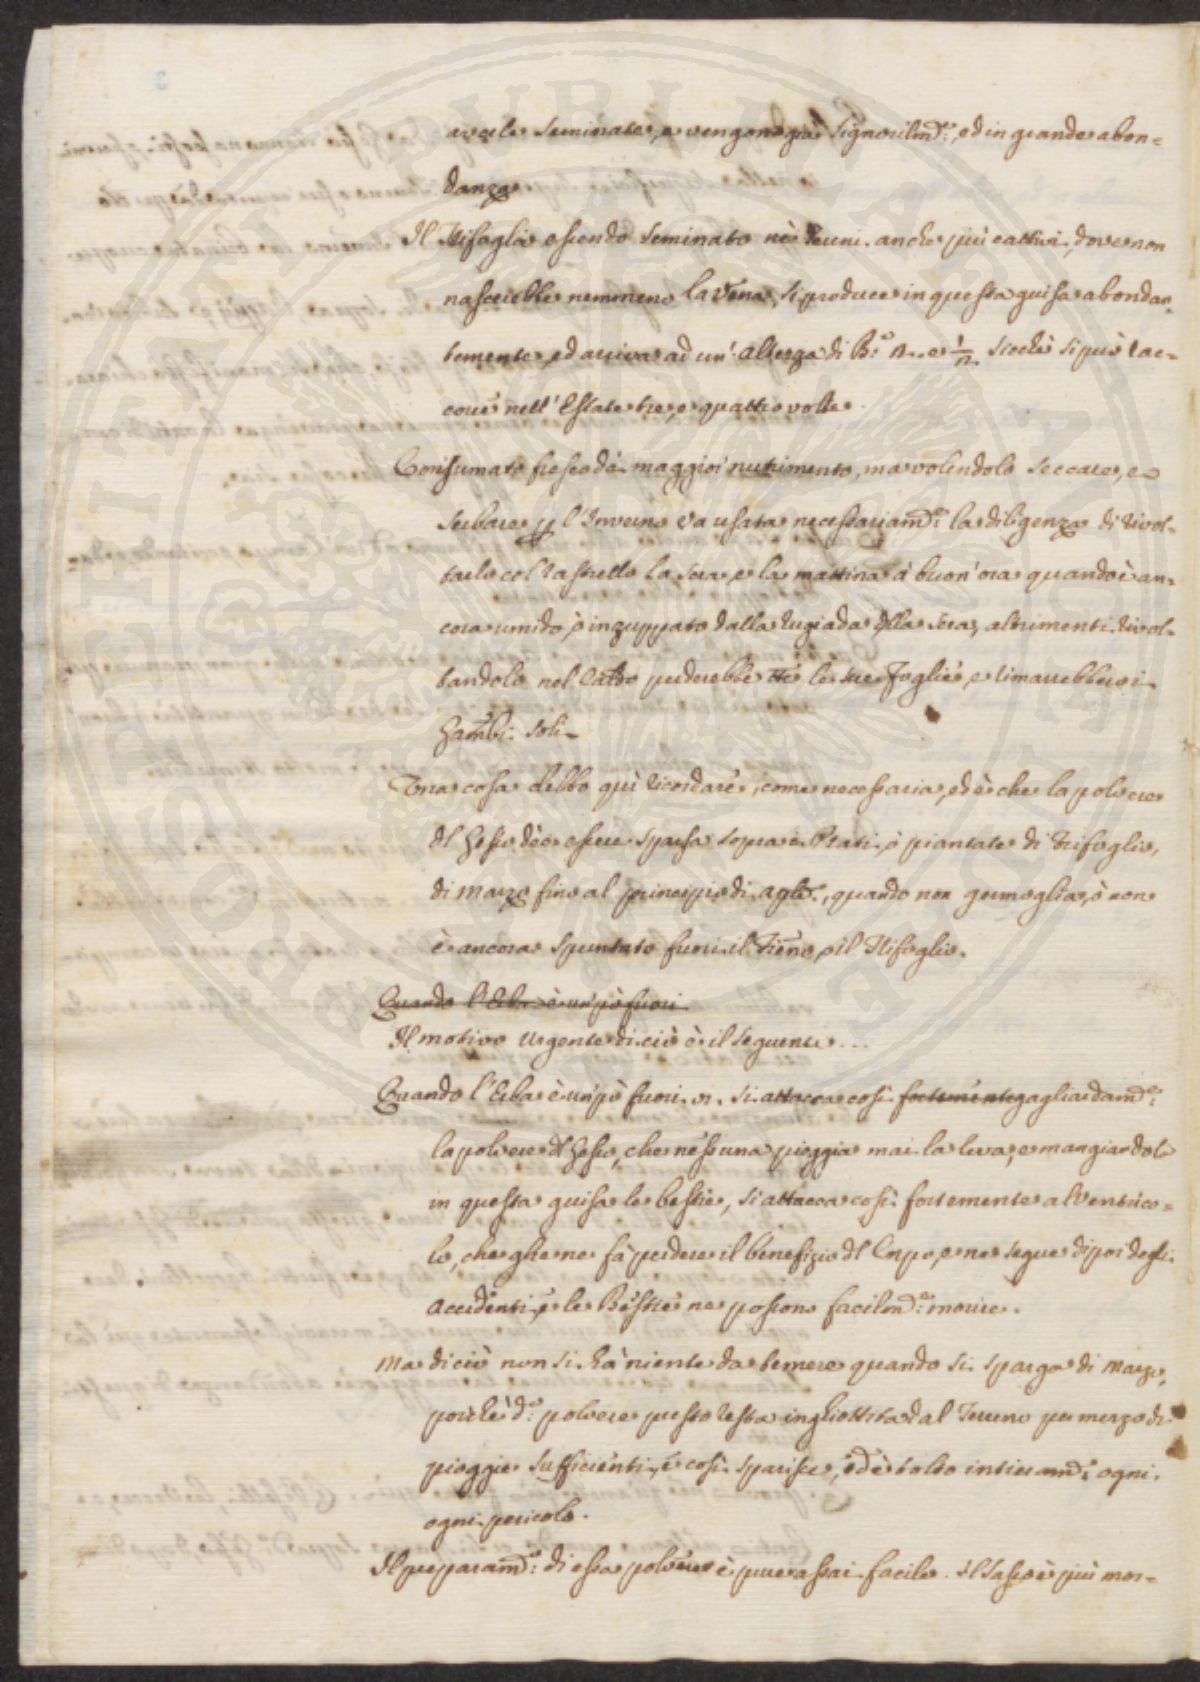 avele seminate, e vengono già Signorilm.e, ed in grande abon=
danza
Il Trifoglio essendo seminato nè Terreni anche più cattivi, dove non
nascerebbe nemmeno la Vena, si produce in questa guisa abondan=
temente, ed arriva ad un' Altezza di B.a 2. e 1/2. sicchè si può rac=
corre nell' Estate tre, o quattro volte.
Consumato fresco dà maggior nutrimento, ma volendolo seccare, e
serbare p l' Inverno va usata necessariam.e la diligenza di rivol=
tarlo col rastrello la sera, e la mattina à buon' ora quando è an=
cora umido, ò inzuppato dalla rugiada della sera, altrimenti rivol=
tandolo nel Caldo perderebbe tte le sue foglie, e rimarrebbero i
Gambi soli
Una cosa debbo quì ricordare, come necessaria, ed è che la polvere
dl Gesso dèe essere sparsa sopra i Prati, ò piantate di Trifoglio,
di Marzo fino al principio di Aple., quando non germoglia, ò non
è ancora spuntato fuori il Fieno, o il Trifoglio.
Quando l' Erba è un pò fuori
Il motivo Urgente di ciò è il seguente...
Quando l' Erba è un pò fuori vi si attacca così fortemente gagliardam.e
la polvere dl Gesso, che nessuna pioggia mai la leva, e mangiandola
in questa guisa le bestie, si attacca così fortemente al Ventrico=
lo, che ghe ne fà perdere il benefizio dl Corpo, e ne segue di poi degli
Accidenti, e le Bestie ne possono facilm.e morire.
Ma di ciò non si hà niente da temere quando si sparga di Marzo,
poichè d.a polvere presto resta inghiottita dal Terreno per mezzo di
pioggie sufficienti, e così sparisce, ed è tolto intieram.e ogni
ogni pericolo.
Il preparam.o di essa polvere è pure assai facile. Il Sasso è più mor=
POSPIT PUBLICAE